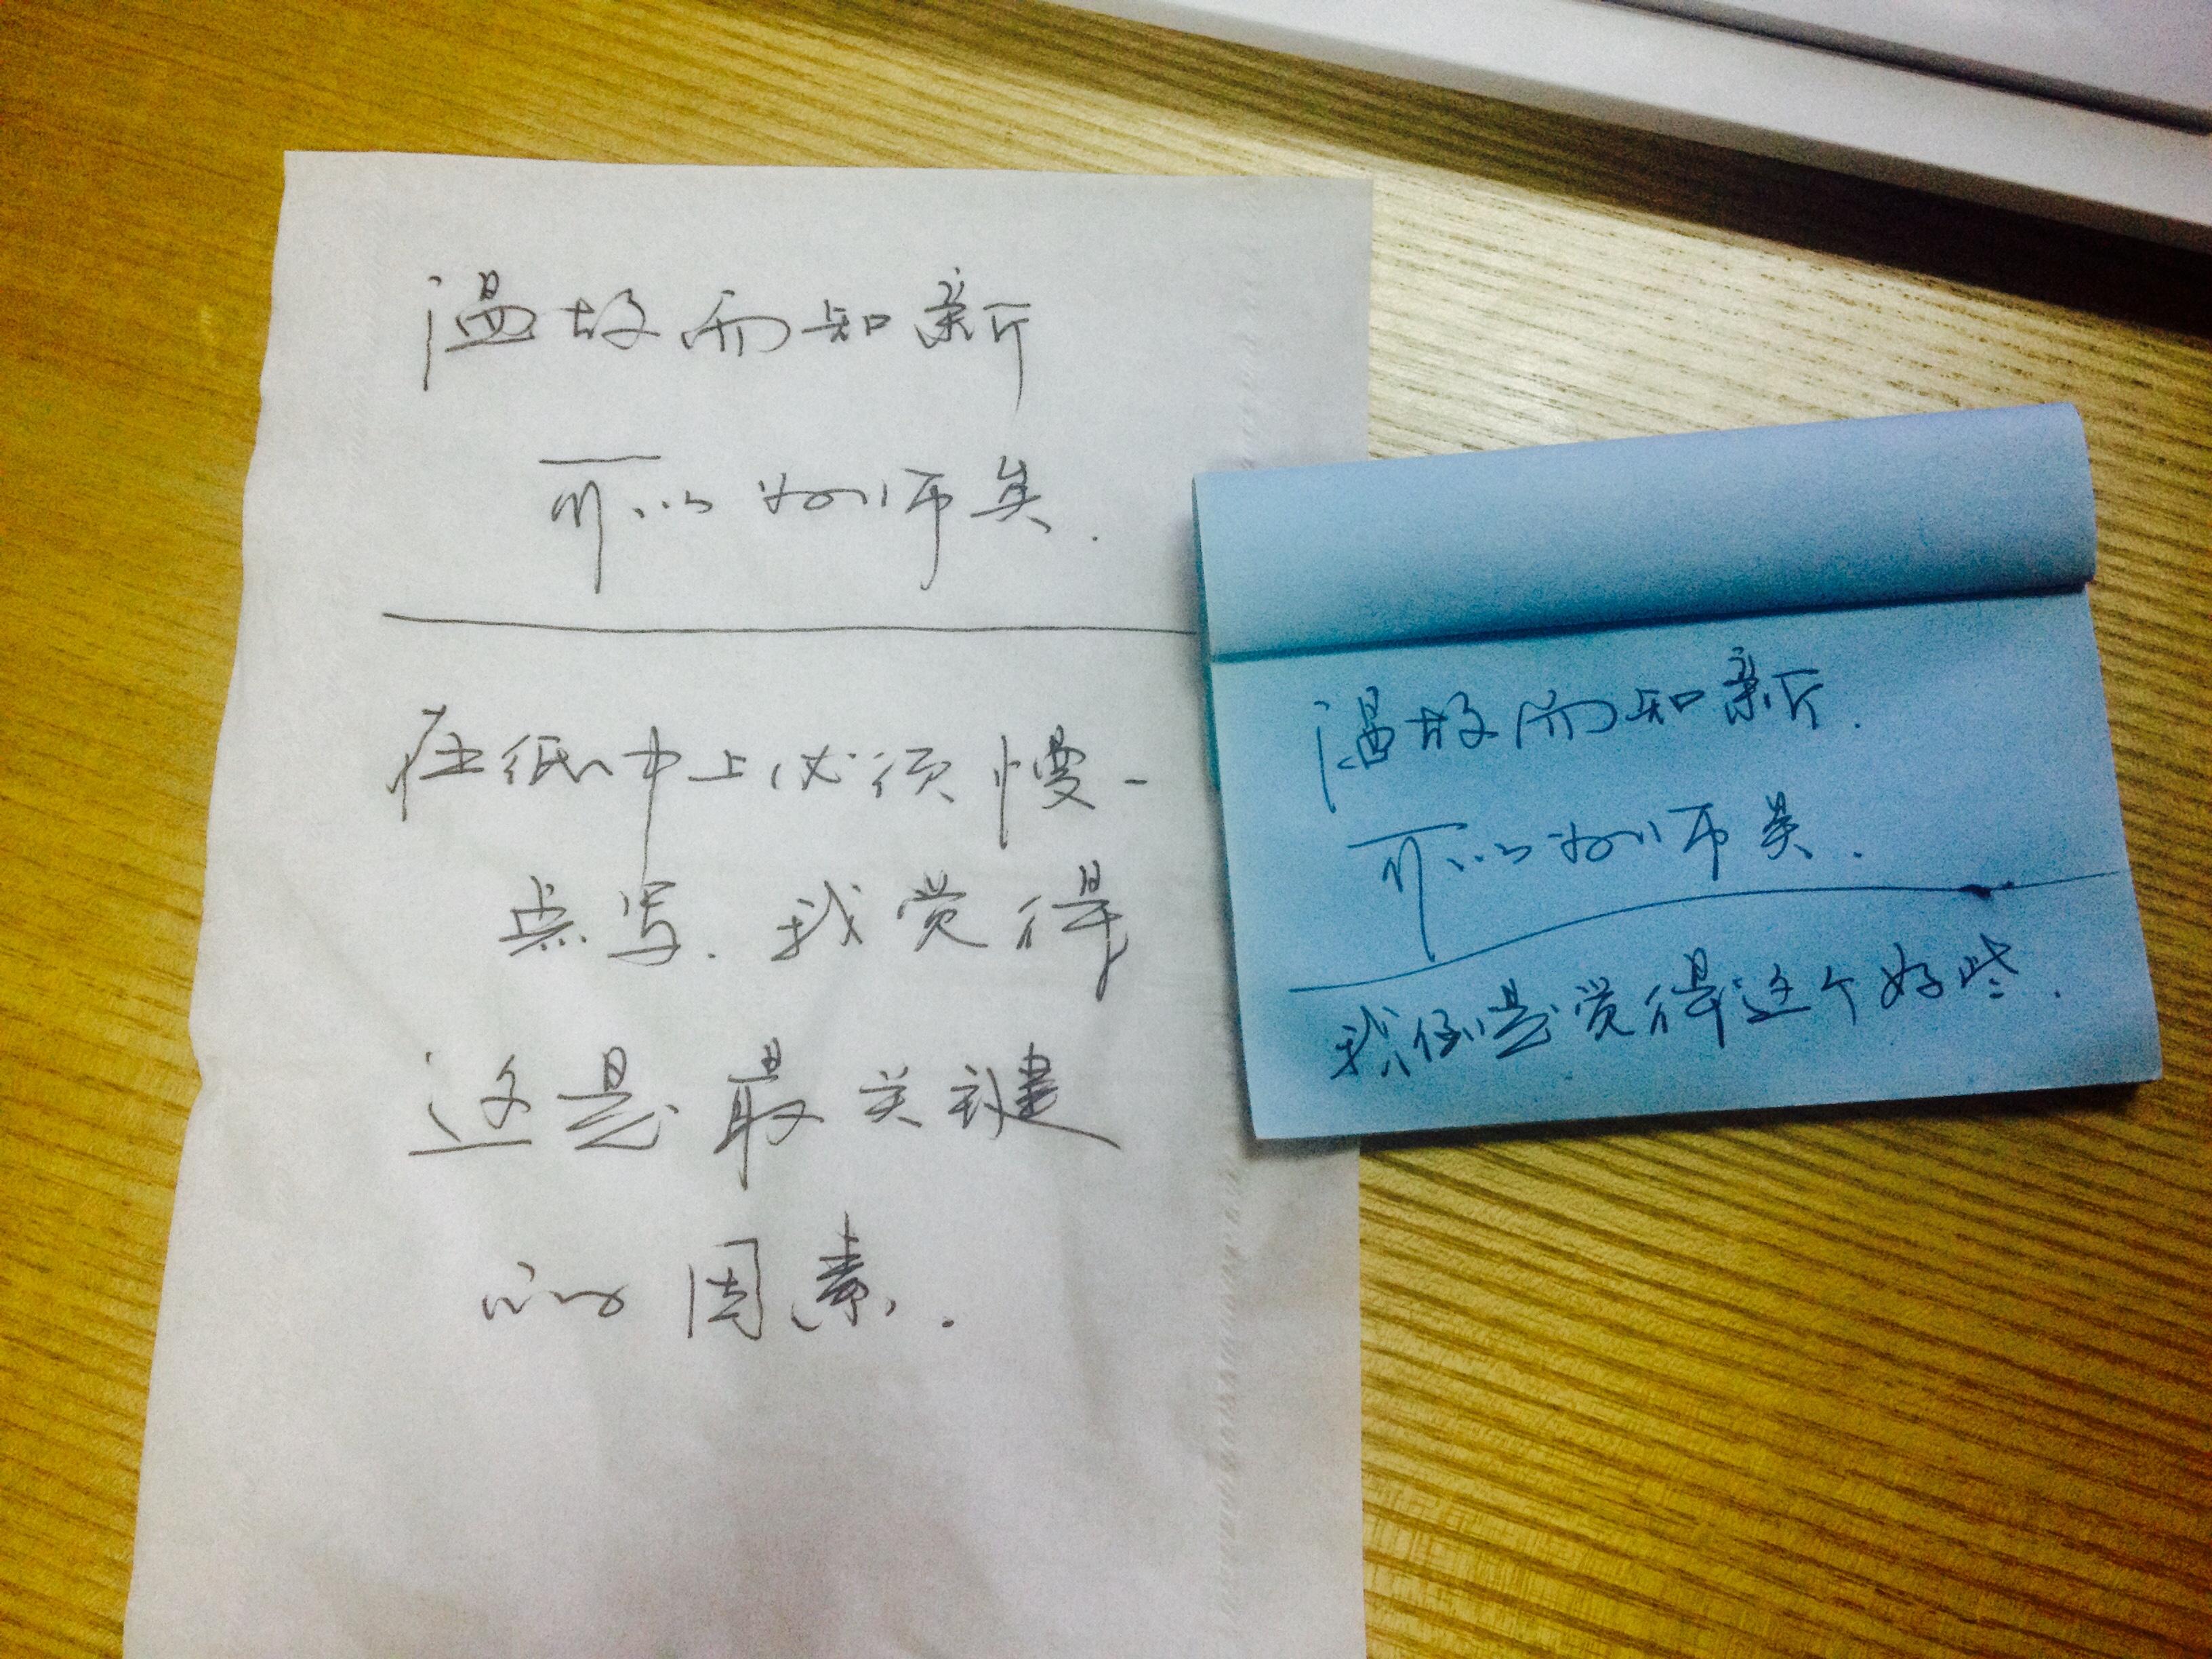 温故而知新
可以为师矣.
在纸巾上必须慢一
点写.我觉得
这是最关键
的因素.
温故而知新.
可以为师矣.
我倒是觉得这个好些.